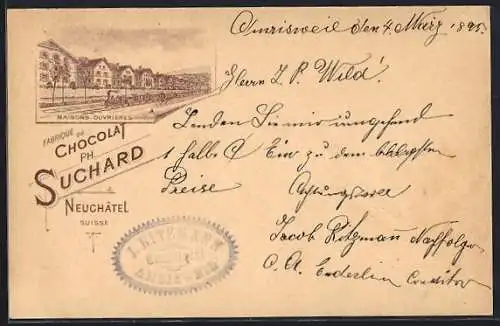 MAISONS OUVRIÈRES
FABRIQUE DE
CHOCOLAT
PH.
SUCHARD
NEUCHÂTEL
SUISSE
Amrisweil den 4. März 1895.
Herrn L. P. Wild!
Senden Sie mir umgehend
1 halbe Ei zu dem
Preise
Achtungsvoll
Jacob Ritzmann Nachfolger
C. A. Enderlin Conditor
J. RITZMANN